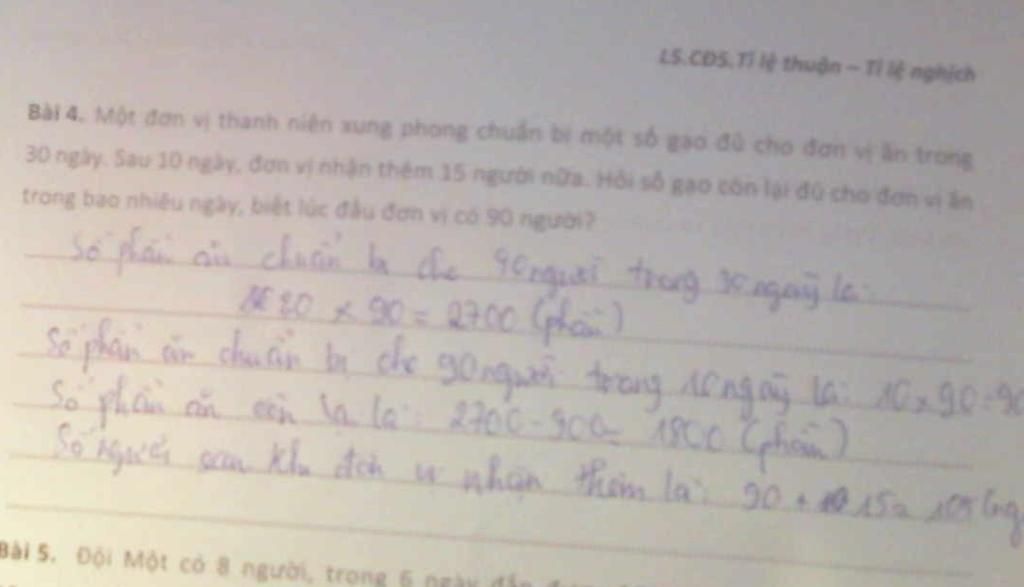 L5.CĐ5.Tỉ lệ thuận – Tỉ lệ nghịch
Bài 4. Một đơn vị thanh niên xung phong chuẩn bị một số gạo đủ cho đơn vị ăn trong
30 ngày. Sau 10 ngày, đơn vị nhận thêm 15 người nữa. Hỏi số gạo còn lại đủ cho đơn vị ăn
trong bao nhiêu ngày, biết lúc đầu đơn vị có 90 người?
Số phần ăn chuẩn bị cho 90 người trong 30 ngày là:
30 x 90 = 2700 (phần)
Số phần ăn chuẩn bị cho 90 người trong 10 ngày là: 10 x 90 = 90
Số phần ăn còn lạ là: 2700 - 900 = 1800 (phần)
Số người sau khi đơn vị nhận thêm là: 90 + 15 = 105 (ng
Bài 5. Đội Một có 8 người, trong 6 ngày đắp